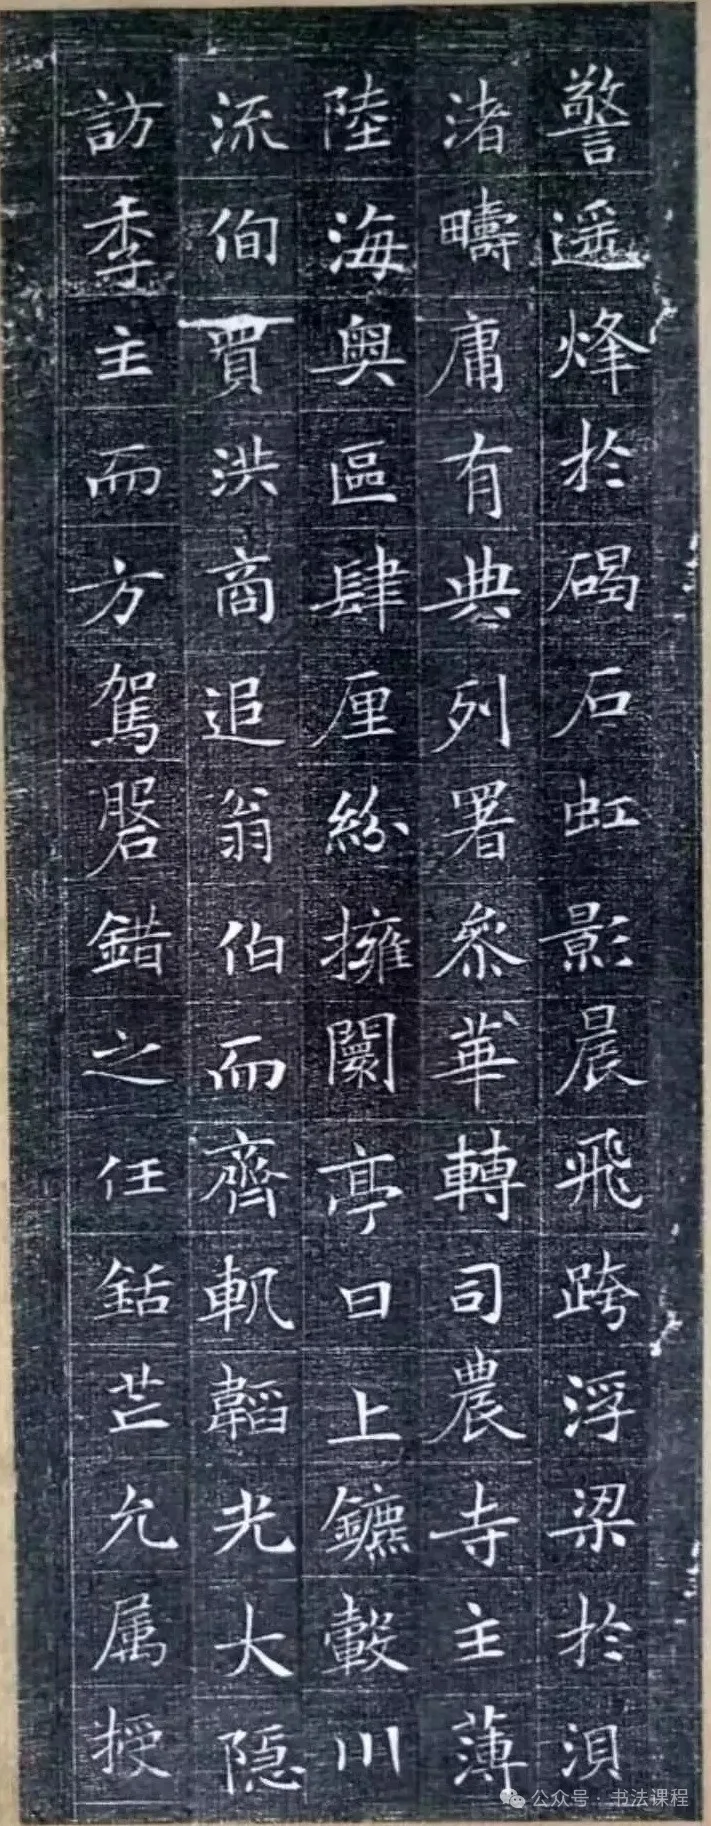 警遥烽於碣石虹影晨飛跨浮梁於浿
渚疇庸有典列署叅華轉司農寺主薄
陸海奥區肆厘紛擁闤亭日上鑣轂川
流侚賈洪商追翁伯而齊軌韜光大隠
訪季主而方駕磐錯之任銛芒允属授
公众号：书法课程